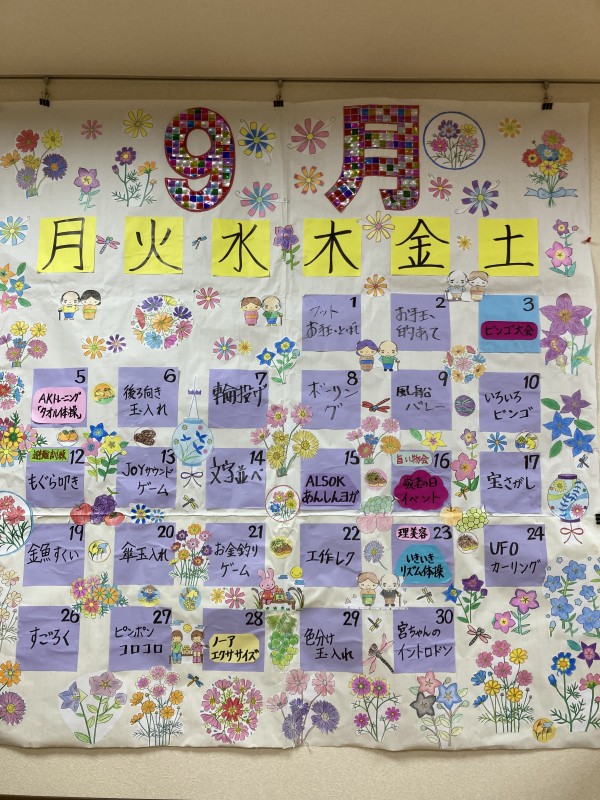 9月
月 火 水 木 金 土
1
フット
お手玉
2
お手玉
的あて
3
ビンゴ大会
5
AKトレーニング
「タオル体操」
6
後ろ向き
玉入れ
7
輪投げ
8
ボーリン
グ
9
風船
バレー
10
いろいろ
ビンゴ
避難訓練
12
もぐら叩き
13
JOYサウンド
ゲーム
14
文字並べ
15
ALSOK
あんしんヨガ
買い物会
16
敬老の日
イベント
17
宝さがし
19
金魚すくい
20
傘玉入れ
21
お金釣り
ゲーム
22
工作レク
理美容
23
いきいき
リズム体操
24
UFO
カーリング
26
すごろく
27
ピンポン
コロコロ
28
ノーア
エクササイズ
29
色分け
玉入れ
30
宮ちゃんの
イントロドン